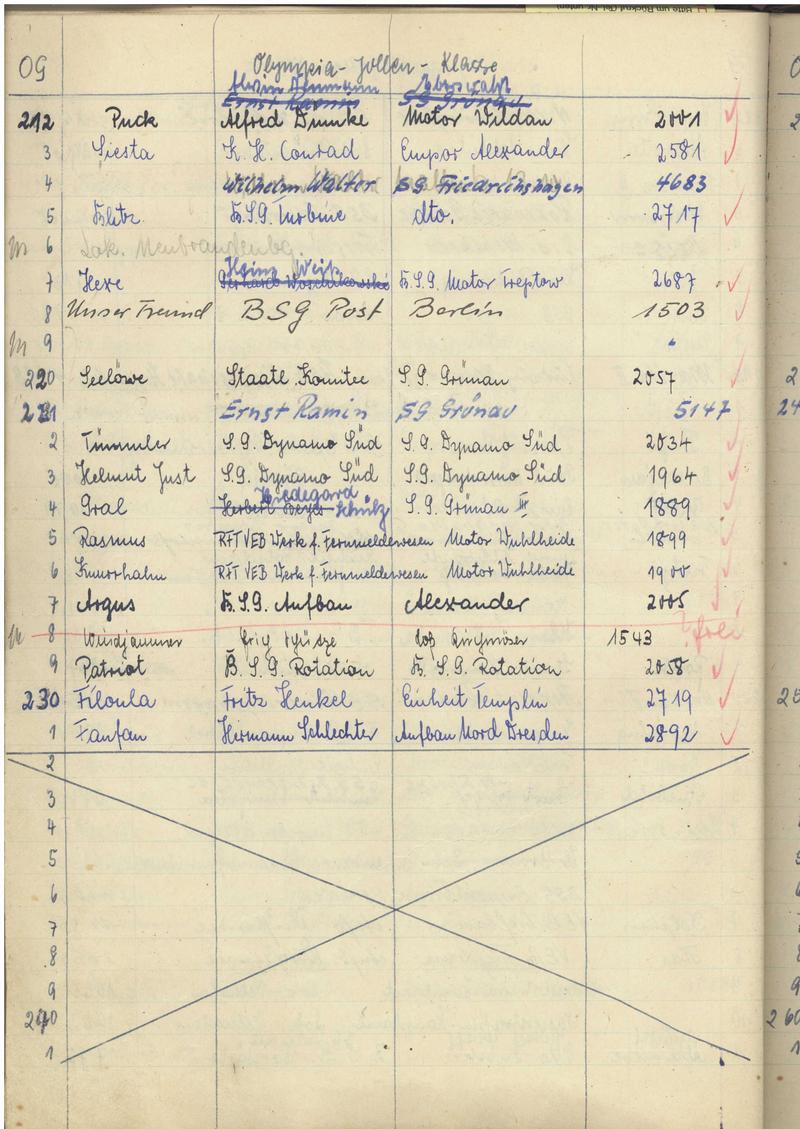 OG Olympia-Jollen-Klasse
Ernst Ramin SG Grünau
212 Puck Alfred Dumke Motor Wildau 2001
3 Siesta K. H. Conrad Empor Alexander 2581
4 Wilhelm Walter SG Friedrichshagen 4683
5 Blitz B.S.G. Turbine dto. 2717
6 Lok. Neubrandenbg.
Heinz
7 Hexe B.S.G. Motor Treptow 2687
8 Unser Freund BSG Post Berlin 1503
9
220 Seelöwe Staatl. Komitee S.G. Grünau 2057
221 Ernst Ramin SG Grünau 5147
2 Tümmler S.G. Dynamo Süd S.G. Dynamo Süd 2034
3 Helmut Just S.G. Dynamo Süd S.G. Dynamo Süd 1964
Hildegard
4 Gral Herbert Beyer Schulz S.G. Grünau III 1889
5 Rasmus RFT VEB Werk f. Fernmeldewesen Motor Wuhlheide 1899
6 Knurrhahn RFT VEB Werk f. Fernmeldewesen Motor Wuhlheide 1900
7 Argus B.S.G. Aufbau Alexander 2005
8 Windjammer Kirchmöser 1543 frei
9 Patriot B.S.G. Rotation B.S.G. Rotation 2058
230 Filoula Fritz Henkel Einheit Templin 2719
1 Fanfan Hermann Schlechter Aufbau Nord Dresden 2892
2
3
4
5
6
7
8
9
240
1